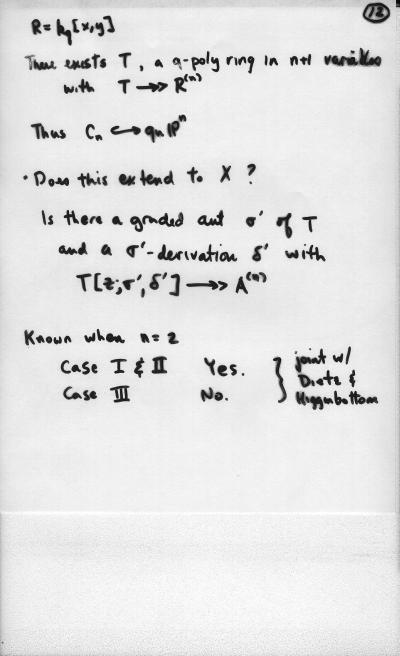 12
R = k_q[x,y]
There exists T, a q-poly ring in n+1 variables
with T →» R^(n)
Thus C_n ↪ q_n ℙ^n
• Does this extend to X ?
Is there a graded aut σ' of T
and a σ'-derivation δ' with
T[z;σ',δ'] →» A^(n)
Known when n = 2
Case I & II Yes. } joint w/
Dietz &
Case III No. Higginbottom